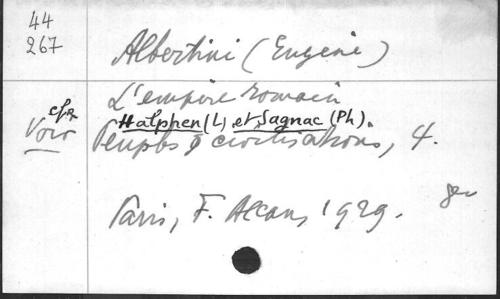 44
267
Albertini (Eugène)
L'empire romain
Voir Halphen (L) et Sagnac (Ph).
Peuples & civilisations, 4.
Paris, F. Alcan, 1929.